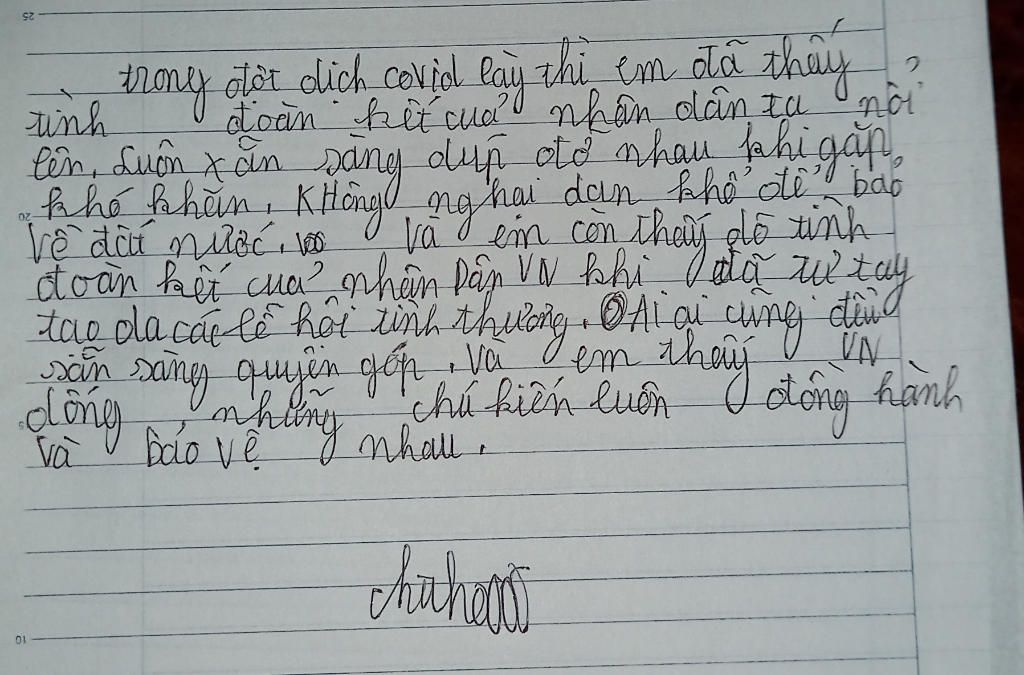 25
trong đợt dịch covid lày thì em đã thấy
tình đoàn kết của nhân dân ta nổi
lên, Luôn xẵn sàng dúp đỡ nhau khi gặp
20 khó khăn, KHông nghại dan khổ để bảo
Về đất nước. Và em còn thấy đố tình
đoàn kết của nhân Dân VN khi đã tự tay
tạo da các lễ hội tình thương. Ai ai cũng đều
sẵn sàng quyên góp, và em thấy VN
5 dống những chú kiến luôn đồng hành
và bảo vệ nhau.
10